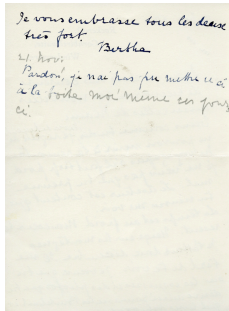 Je vous embrasse tous les deux
très fort.
Bertha
21. Nov.
Pardon, je n'ai pas pu mettre ce ci
à la boite moi même ces jours
ci.